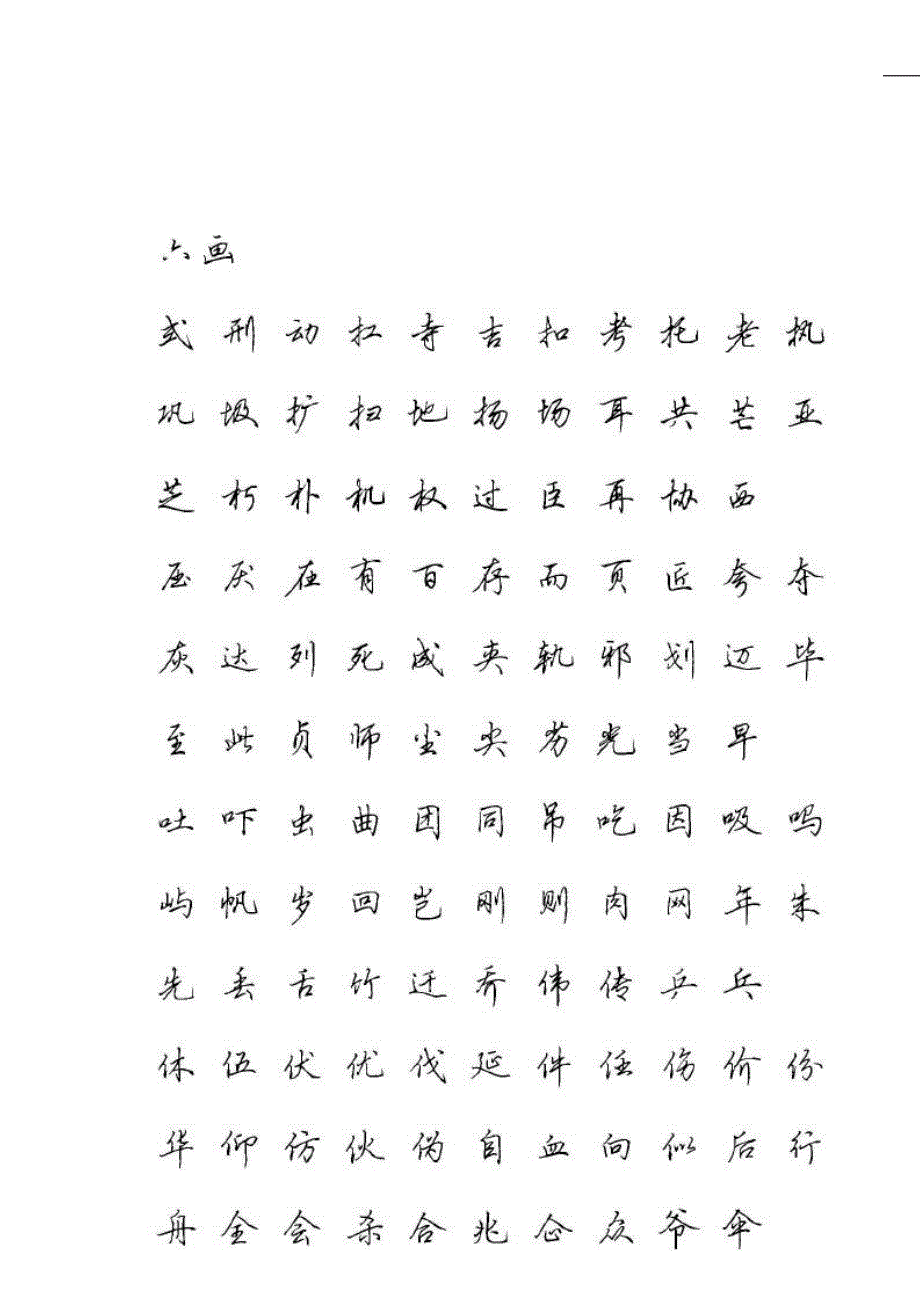 六画
式 刑 动 扛 寺 吉 扣 考 托 老 执
巩 圾 扩 扫 地 扬 场 耳 共 芒 亚
芝 朽 朴 机 权 过 臣 再 协 西
压 厌 在 有 百 存 而 页 匠 夸 夺
灰 达 列 死 成 夹 轨 邪 划 迈 毕
至 此 贞 师 尘 尖 劣 光 当 早
吐 吓 虫 曲 团 同 吊 吃 因 吸 吗
屿 帆 岁 回 岂 刚 则 肉 网 年 朱
先 丢 舌 竹 迁 乔 伟 传 乒 乓
休 伍 伏 优 伐 延 件 任 伤 价 份
华 仰 仿 伙 伪 自 血 向 似 后 行
舟 全 会 杀 合 兆 企 众 爷 伞